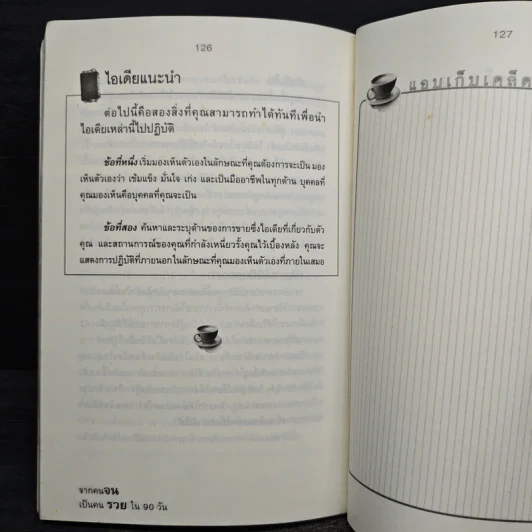 126
ไอเดียแนะนำ
ต่อไปนี้คือสองสิ่งที่คุณสามารถทำได้ทันทีเพื่อนำ
ไอเดียเหล่านี้ไปปฏิบัติ
ข้อที่หนึ่ง เริ่มมองเห็นตัวเองในลักษณะที่คุณต้องการจะเป็น มอง
เห็นตัวเองว่า เข้มแข็ง มั่นใจ เก่ง และเป็นมืออาชีพในทุกด้าน บุคคลที่
คุณมองเห็นคือบุคคลที่คุณจะเป็น
ข้อที่สอง ค้นหาและระบุด้านของการขายซึ่งไอเดียที่เกี่ยวกับตัว
คุณ และสถานการณ์ของคุณที่กำลังเหนี่ยวรั้งคุณไว้เบื้องหลัง คุณจะ
แสดงการปฏิบัติที่ภายนอกในลักษณะที่คุณมองเห็นตัวเองที่ภายในเสมอ
จากคนจน
เป็นคน รวย ใน 90 วัน
127
แอบเก็บเคล็ด